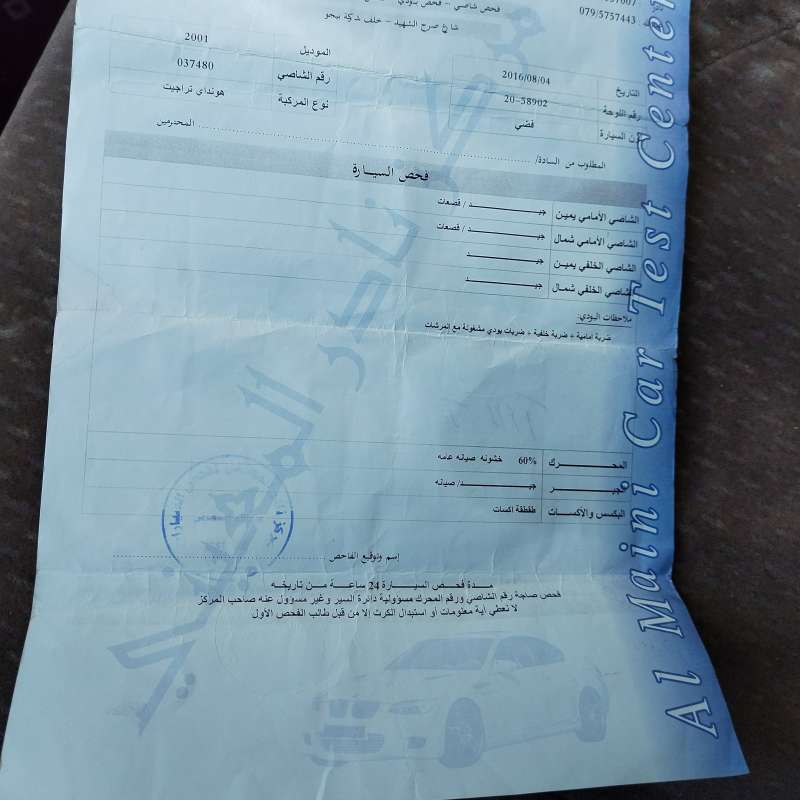 فحص شاصي – فحص بودي
079/5757443
شارع صرح الشهيد – خلف شركة بيجو
التاريخ 2016/08/04 الموديل 2001
رقم اللوحة 20-58902 رقم الشاصي 037480
لون السيارة فضي نوع المركبة هونداي تراجيت
المطلوب من السادة/ المحترمين
فحص السيـــارة
الشاصي الأمامي يمين جيـــــــد / قصعات
الشاصي الأمامي شمال جيـــــــد / قصعات
الشاصي الخلفي يمين جيـــــــد
الشاصي الخلفي شمال جيـــــــد
ملاحظات البودي:
ضربة امامية + ضربة خلفية + ضربات بودي مشغولة مع
المحـــــرك 60% خشونه صيانه عامه
الجيـــــر جيـــــــد/ صيانه
البكسس والأكسات طقطقة اكسات
إسم وتوقيع الفاحص
مـدة فحـص السيـــارة 24 ساعـة مـن تاريخـه
فحص صاجة رقم الشاصي ورقم المحرك مسؤولية دائرة السير وغير مسوول عنه صاحب المركز
لا نعطي أية معلومات أو استبدال الكرت إلا من قبل طالب الفحص الاول
Al Maini Car Test Center